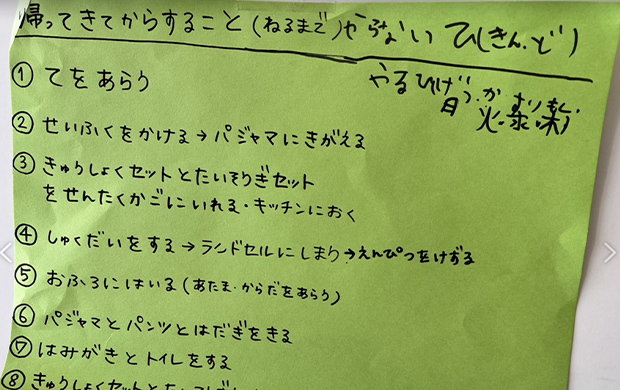 帰ってきてからすること(ねるまで)やらないひ(きん、ど)
やるひ げつ、か
① てをあらう
② せいふくをかける→パジャマにきがえる
③ きゅうしょくセットとたいそうぎセット
をせんたくかごにいれる・キッチンにおく
④ しゅくだいをする→ランドセルにしまう→えんぴつをけずる
⑤ おふろにはいる(あたま・からだをあらう)
⑥ パジャマとパンツとはだぎをきる
⑦ はみがきとトイレをする
⑧ きゅうしょくセットとた